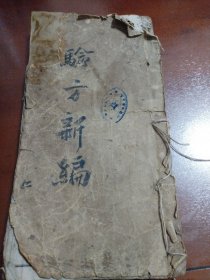 驗方新編
仁